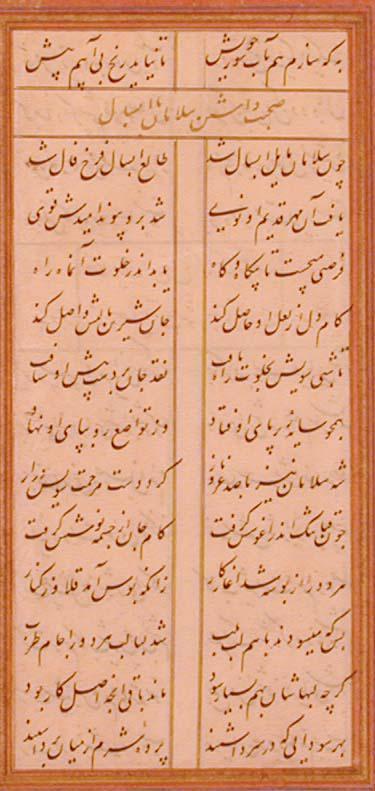 به که سازم هم بآب جوی خویش تا نیاید رنج بی آبیم پیش
صحبت داشتن سلامان با ابسال
چون سلامان مایل ابسال شد طالع ابسال فرخ فال شد
یافت آن مهر قدیم او نوی شد بدو پیوند امیدش قوی
فرصتی میجست تا بیگاه و گاه یابد اندر خلوت آن ماه راه
کام دل از لعل او حاصل کند جان شیرین با لبش واصل کند
تا شبی سویش بخلوت راه یافت نقد جان بر دست پیش او شتافت
همچو سایه زیر پای او فتاد وز تواضع رو بپای او نهاد
شه سلامان نیز با صد عز و ناز کرد دست مرحمت سویش دراز
چون قبا تنگ اندر آغوشش گرفت کام جان از چشمه نوشش گرفت
هر دو را از بوسه شد آغاز کار زانکه بوس آمد قلاوز کنار
بس که میسودند با هم لب بلب شد لبالب هر دو را جام طرب
گرچه لبهاشان بهم بسیار سود ماند باقی آنچه اصل کار بود
بهر سودایی که در سر داشتند پرده شرم از میان برداشتند